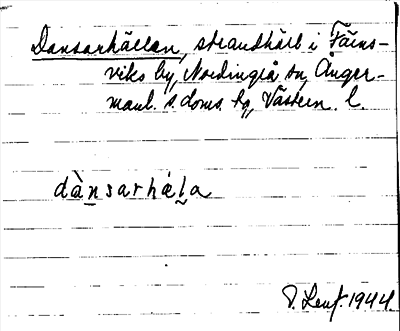 Dansarhällan, strandhäll i
viks by, Nordingrå sn, Ånger-
manl. s. doms. tg, Västern. l.
dànsarhála
1944